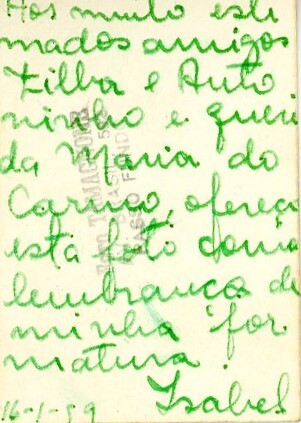 Aos muito esti
mados amigos
Zilba e Anto
ninho e queri
da Maria do
Carmo, ofereço
esta foto como
lembrança de
minha for
matura.
Isabel
16-1-59